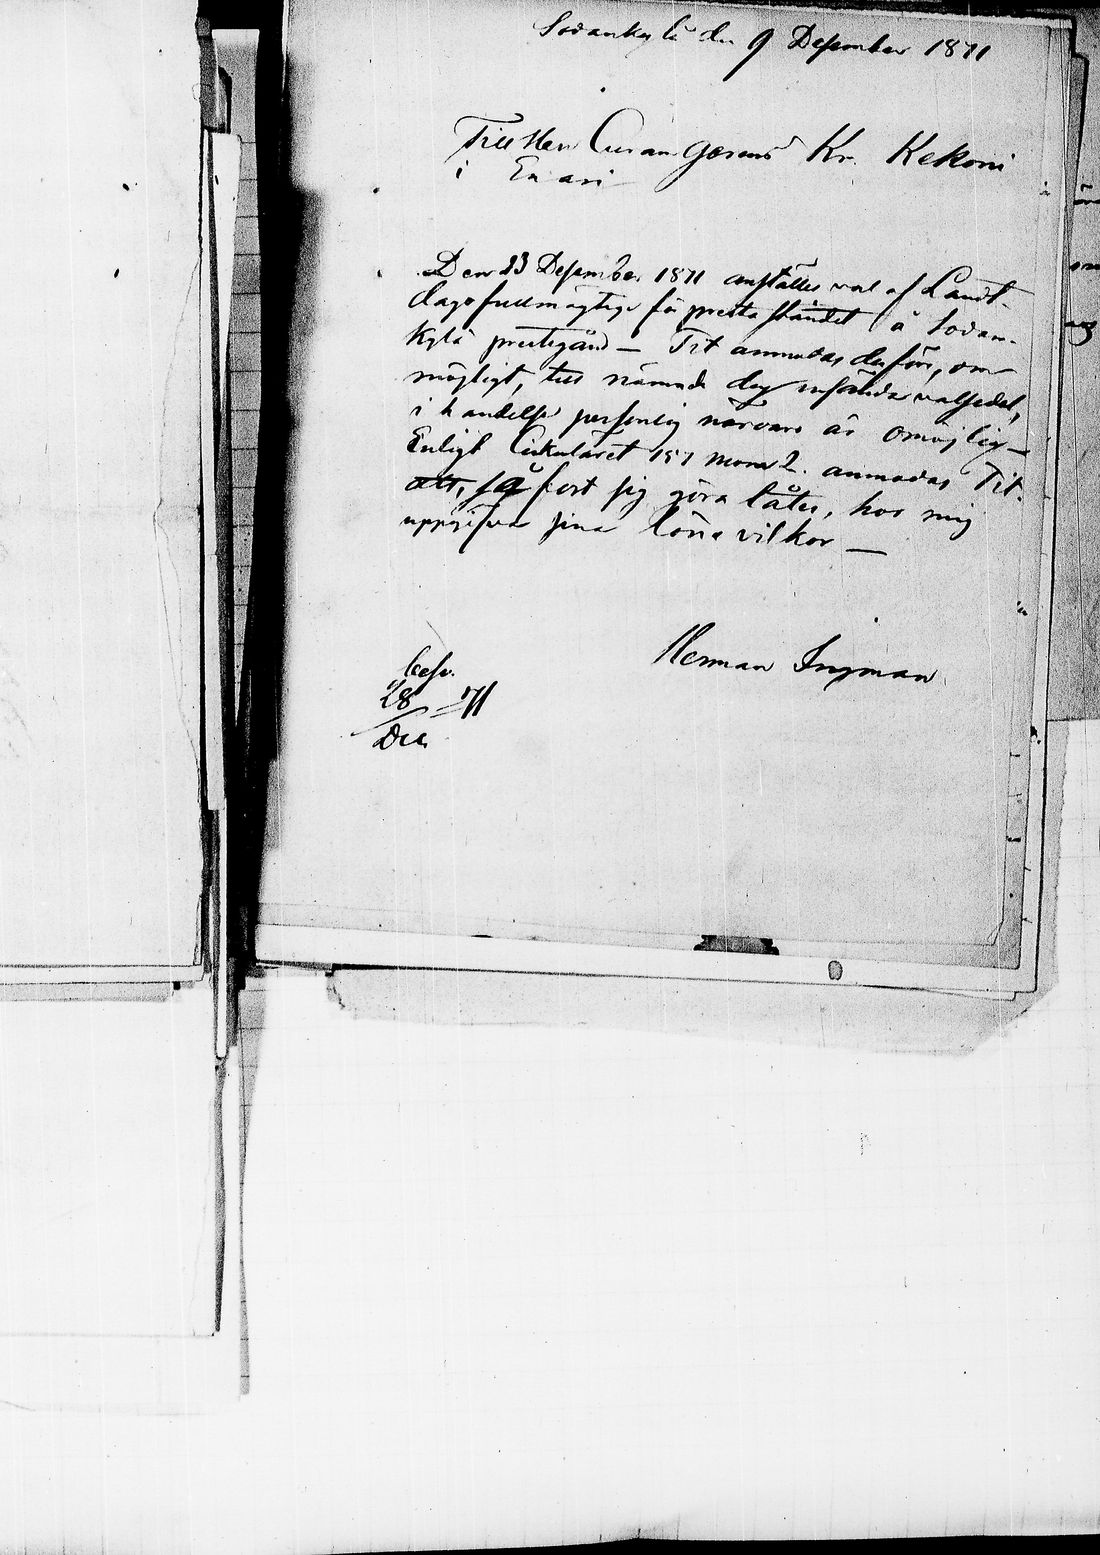 Sodankylä den 9 December 1871
Till Herr Curam gerens Kr. Kekoni
i Enari
Den 23 December 1871 anställes val af Landt-
dagsfullmägtige för prestaståndet å Sodan-
kylä prestegård — Tit anmodas derföre, om
möjligt, till nämnde dag insända valsedel,
i händelse personlig närvaro är omöjlig —
Enligt Cirkuläret 187 mom 2. anmodas Tit.
att, så fort sig göra låter, hos mig
uppgifva sina löne vilkor —
Herman Ingman
besv.
28/Dec -71